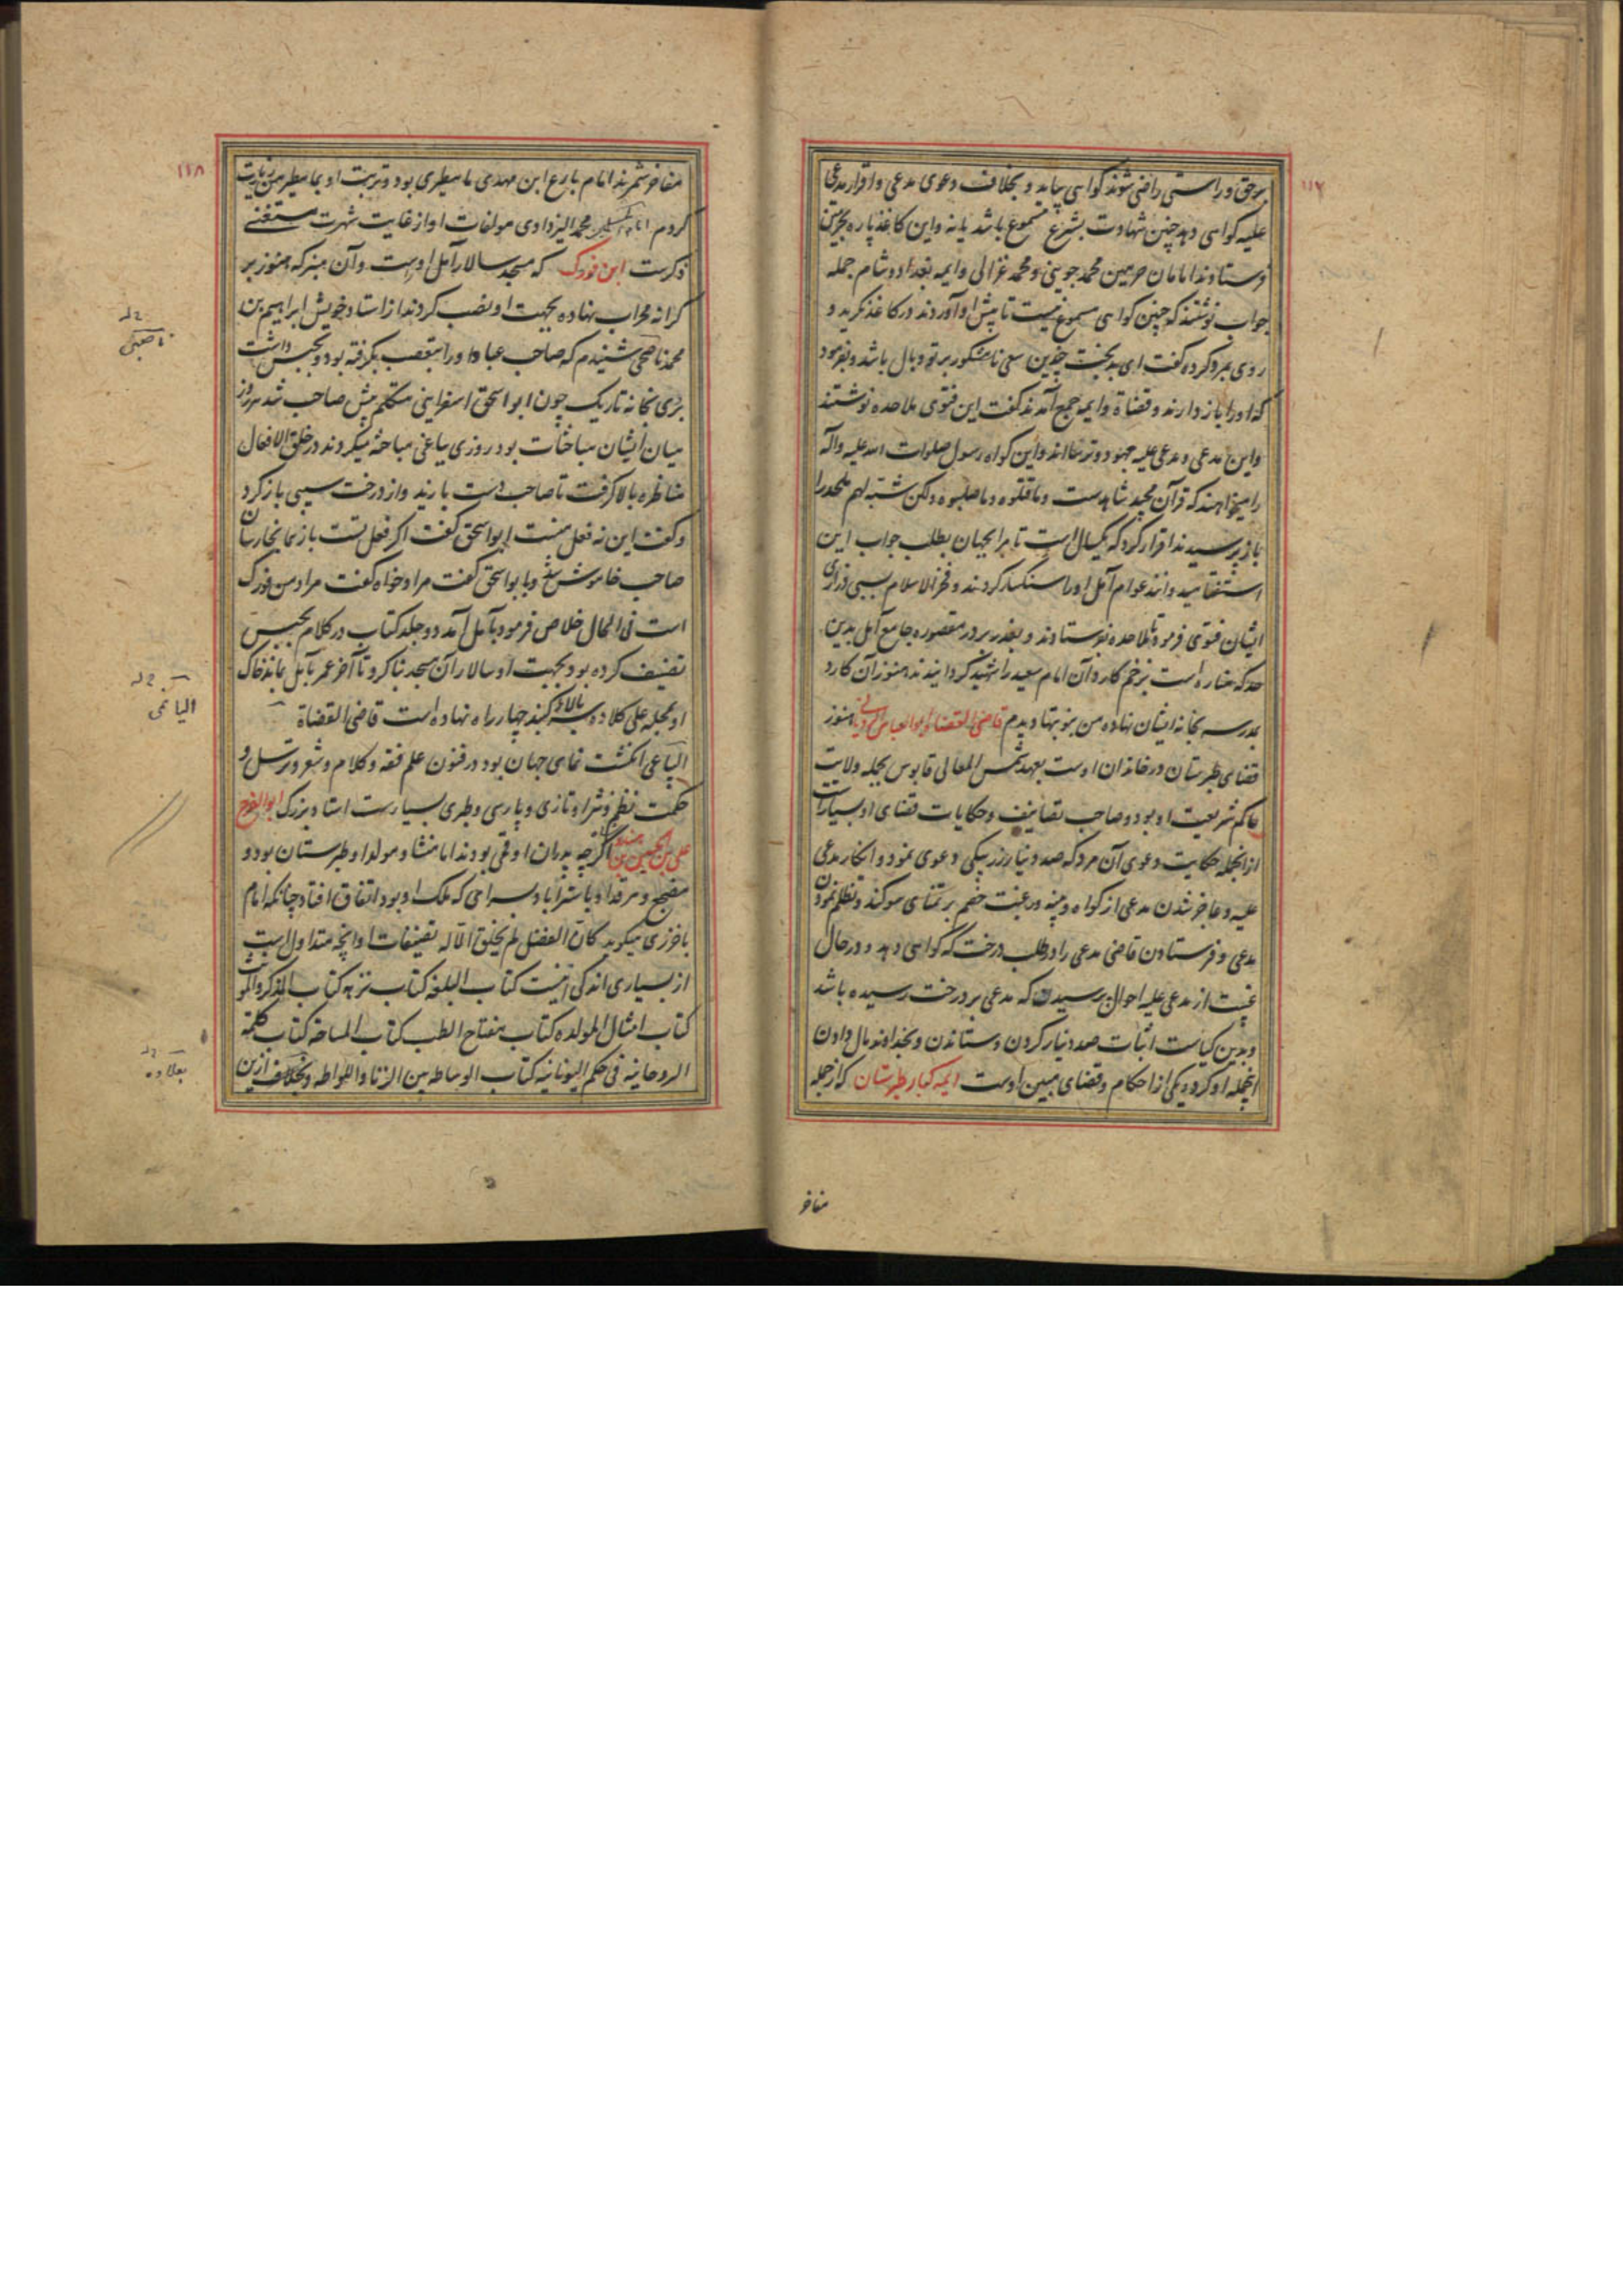 ۱۱۷
برحق و راستی راضی شوند کواهی بیاید و بخلاف دعوی مدعی و اقرار مدعی
علیه کواهی دهد چنین شهادت بشرع مسموع باشد یا نه و این کاغذ پاره بحرمین
فرستادند امامان حرمین محمد جوینی و محمد غزالی و ایمه بغداد و شام جمله
جواب نوشتند که چنین کواهی مسموع نیست تا پیش او آوردند در کاغذ نکرید و
روی بمرد کرده کفت ای بدبخت چندین سعی نامشکور بر تو وبال باشد و بفرمود
که او را باز دارند و قضاة و ایمه جمع آمدند کفت این فتوی ملاحده نوشتند
و این مدعی و مدعی علیه جهود و ترسااند و این کواه رسول صلوات الله علیه و آله
را میخواهند که قرآن مجید شاهدست و ما قتلوه و ما صلبوه ولکن شبه لهم ملحد را
باز پرسیدند اقرار کرد که یکسال است تا مرا بجهان بطلب جواب این
استفتا میدوانند عوام آمل او را سنکسار کردند و فخرالاسلام بسبی ذراری
ایشان فتوی فرمود تا ملاحده بفرستادند و بغدر بر در مقصوره جامع آمل بدین
حد که مناره است بزخم کارد آن امام سعید را شهید کردانیدند هنوز آن کارد
بمدرسه بخانه ایشان نهاده من بنوبتها دیدم قاضی القضاة ابوالعباس الرویانی هنوز
قضای طبرستان در خاندان اوست بعهد شمس المعالی قابوس بجمله ولایت
حاکم شریعت او بود و صاحب تصانیف و حکایات قضای او بسیارست
از انجمله حکایت دعوی آن مرد که صد دینار زر بیکی دعوی نمود و انکار مدعی
علیه و عاجز شدن مدعی از کواه و بینه و رغبت خصم بر تمنای سوکند و تظلم نمودن
مدعی و فرستادن قاضی مدعی را در طلب درخت که کواهی دهد و در حال
غیبت از مدعی علیه احوال پرسیدن که مدعی بر درخت رسیده باشد
و بدین کیاست اثبات صد دینار کردن و ستاندن و بخداوند مال دادن
انجمله او کرده یکی از احکام و قضای مبین اوست ایمه کبار طبرستان که از جمله
مفاخر
۱۱۸
مفاخر شمرند امام بارع ابن مهدی مامطیری بود و تربت او بمامطیر من زیارت
کردم امام محمد الیزدادی مولفات او از غایت شهرت مستغنی
ذکرست ابن فورک که مسجد سالار آمل اوست و آن منبر که هنوز بر
کرانه محراب نهاده بجهت او نصب کردند از استاد خویش ابراهیم بن
محمد ناصحی شنیدم که صاحب عباد او را بتعصب بکرفته بود و بحبس داشت
بری بخانه تاریک چون ابو اسحق اسفراینی متکلم پیش صاحب شد هر روز
میان ایشان مباحثات بود روزی بباغی مباحثه میکردند در خلق الافعال
مناظره بالا کرفت تا صاحب دست یازید و از درخت سیبی باز کرد
و کفت این نه فعل منست ابو اسحق کفت اکر فعل تست باز بما نجا رسان
صاحب خاموش شد و با بو اسحق کفت مراد خواه کفت مراد من فورک
است فی الحال خلاص فرمود بآمل آمد دو جلد کتاب در کلام بحبس
تصنیف کرده بود بجهت او سالار آن مسجد بنا کرد تا آخر عمر بآمل بماند خاک
او بمحله علی کلاده سر بالا و کنبد چهار راه نهاده است قاضی القضاة
الیاعی انکشت نمای جهان بود در فنون علم فقه و کلام و شعر و ترسل و
حکمت نظم و نثر او تازی و پارسی و طبری بسیارست استاد بزرک ابوالفرج
علی بن الحسین بن هندو اکرچه پدران او قمی بودند اما منشا و مولد او طبرستان بود و
مضجع و مرقد او باسترآباد بسرایی که ملک او بود اتفاق افتاد چنانکه امام
باخرزی میکوید کان الفضل لم یخلق الا له تصنیفات او انچه متداول است
از بسیاری اندکی اینست کتاب البلغه کتاب نزهه کتاب المذکر و المونث
کتاب امثال المولده کتاب مفتاح الطب کتاب المساحه کتاب کلمة
الروحانیه فی حکم الیونانیه کتاب الوساطه بین الزنا و اللواطه و بخلاف ازین
ناصحی
الیاعی
بعلاده